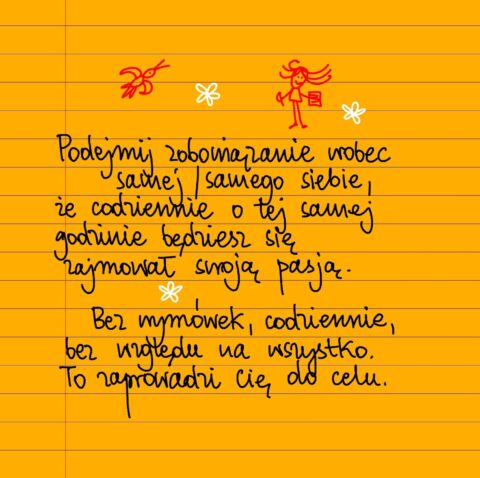 Podejmij zobowiązanie wobec
samej / samego siebie,
że codziennie o tej samej
godzinie będziesz się
zajmował swoją pasją.
Bez wymówek, codziennie,
bez względu na wszystko.
To zaprowadzi Cię do celu.